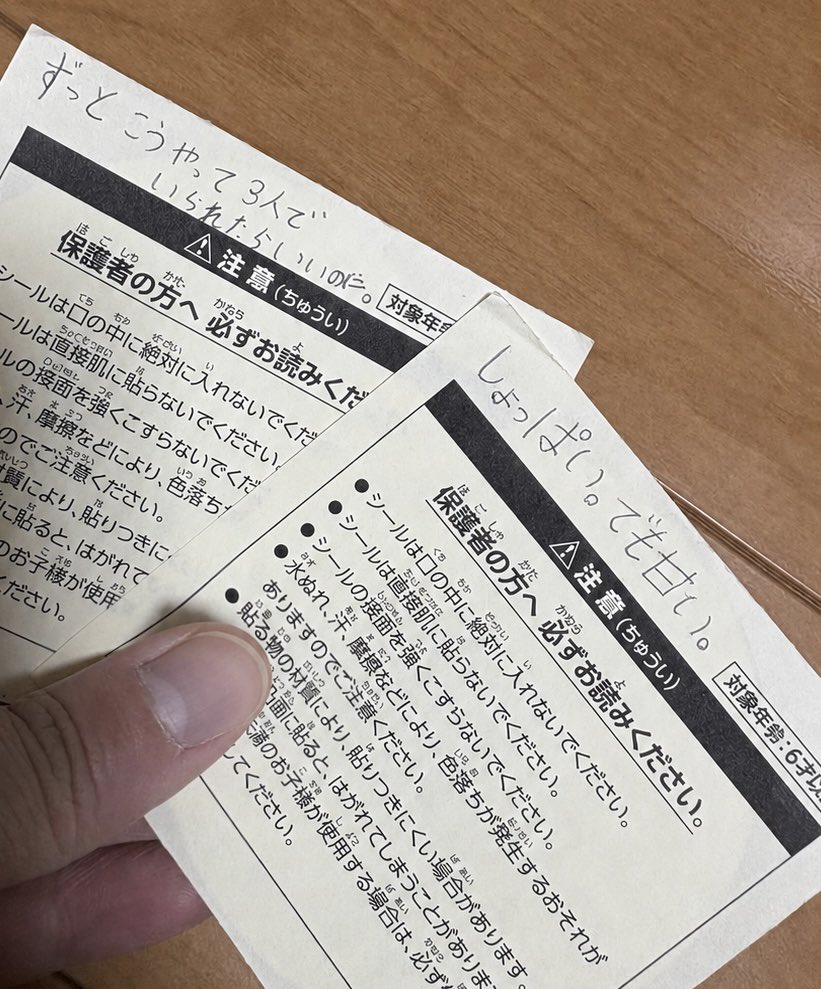 ずっと こうやって 3人で
いられたらいいのに。
⚠注意(ちゅうい)
対象年齢
保護者の方へ 必ずお読みくだ
シールは口の中に絶対に入れないでくだ
ールは直接肌に貼らないでください。
ルの接面を強くこすらないでくだ
、汗、摩擦などにより、色落ちか
のでご注意ください。
材質により、貼りつきに
に貼ると、はがれて
のお子様が使用
ください。
しょっぱい。でも甘い。
⚠注意(ちゅうい)
対象年齢:6才以
保護者の方へ 必ずお読みください。
●シールは口の中に絶対に入れないでください。
●シールは直接肌に貼らないでください。
●シールの接面を強くこすらないでください。
●水ぬれ、汗、摩擦などにより、色落ちが発生するおそれが
ありますのでご注意ください。
●貼る物の材質により、貼りつきにくい場合があります。
面に貼ると、はがれてしまうことがありま
満のお子様が使用する場合は、必ず
してください。